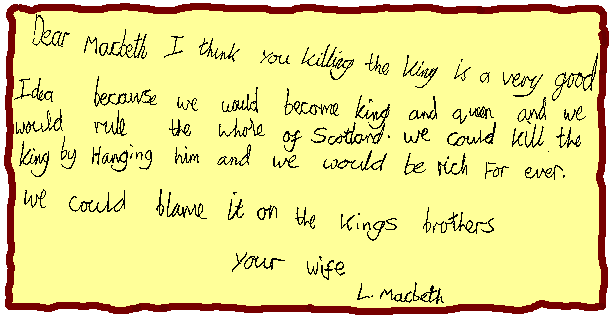 Dear Macbeth I think you killing the king is a very good
Idea because we would become king and queen and we
would rule the whole of Scotland. we could kill the
king by Hanging him and we would be rich For ever.
we could blame it on the kings brothers
your wife
L. Macbeth